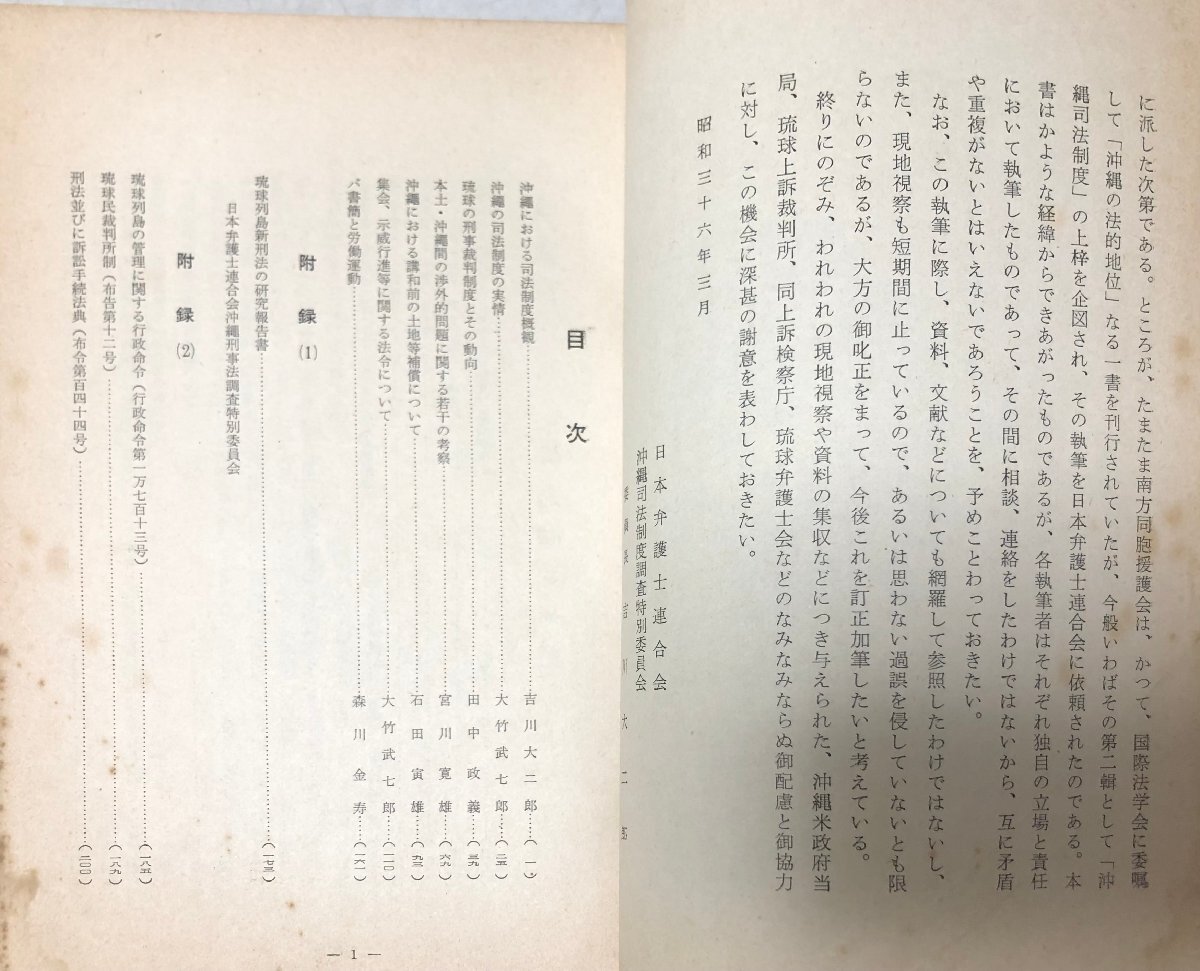 に派した次第である。ところが、たまたま南方同胞援護会は、かつて、国際法学会に委嘱
して「沖縄の法的地位」なる一書を刊行されていたが、今般いわばその第二輯として「沖
縄司法制度」の上梓を企図され、その執筆を日本弁護士連合会に依頼されたのである。本
書はかような経緯からできあがったものであるが、各執筆者はそれぞれ独自の立場と責任
において執筆したものであって、その間に相談、連絡をしたわけではないから、互に矛盾
や重複がないとはいえないであろうことを、予めことわっておきたい。
なお、この執筆に際し、資料、文献などについても網羅して参照したわけではないし、
また、現地視察も短期間に止っているので、あるいは思わない過誤を侵していないとも限
らないのであるが、大方の御叱正をまって、今後これを訂正加筆したいと考えている。
終りにのぞみ、われわれの現地視察や資料の集収などにつき与えられた、沖縄米政府当
局、琉球上訴裁判所、同上訴検察庁、琉球弁護士会などのなみなみならぬ御配慮と御協力
に対し、この機会に深甚の謝意を表わしておきたい。
昭和三十六年三月
日本弁護士連合会
沖縄司法制度調査特別委員会
目次
沖縄における司法制度概観……吉川大二郎……(一)
沖縄の司法制度の実情……大竹武七郎……(二五)
琉球の刑事裁判制度とその動向……田中政義……(三九)
本土・沖縄間の渉外的問題に関する若干の考察……宮川寛雄……(六九)
沖縄における講和前の土地等補償について……石田寅雄……(九三)
集会、示威行進等に関する法令について……大竹武七郎……(一一〇)
バ書簡と労働運動……森川金寿……(一六一)
附録(1)
琉球列島新刑法の研究報告書……(一七三)
日本弁護士連合会沖縄刑事法調査特別委員会
附録(2)
琉球列島の管理に関する行政命令(行政命令第一万七百十三号)……(一八五)
琉球民裁判所制(布告第十二号)……(一八九)
刑法並びに訴訟手続法典(布令第百四十四号)……(二〇〇)
— 1 —